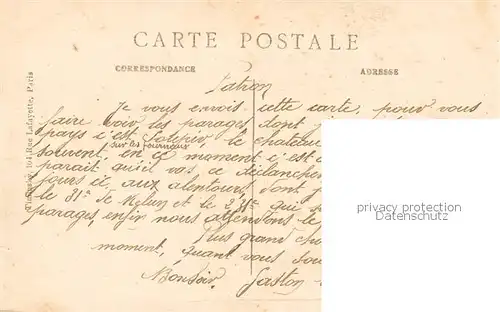 CARTE POSTALE
CORRESPONDANCE
ADRESSE
Patron
Je vous envois cette carte, pour vous
faire voir les parages dont
pays c'est le chateau
sur les journaux
souvent, en ce moment c'est
parait qu'il vas ce déclancher
jours ici, aux alentours, sont
le 31e de Melun et le 231e qui
parages, enfin nous attendons le
Plus grand
moment, quant vous
Bonsoir. Gaston
104, Rue Lafayette, Paris
privacy protection
Memory Card